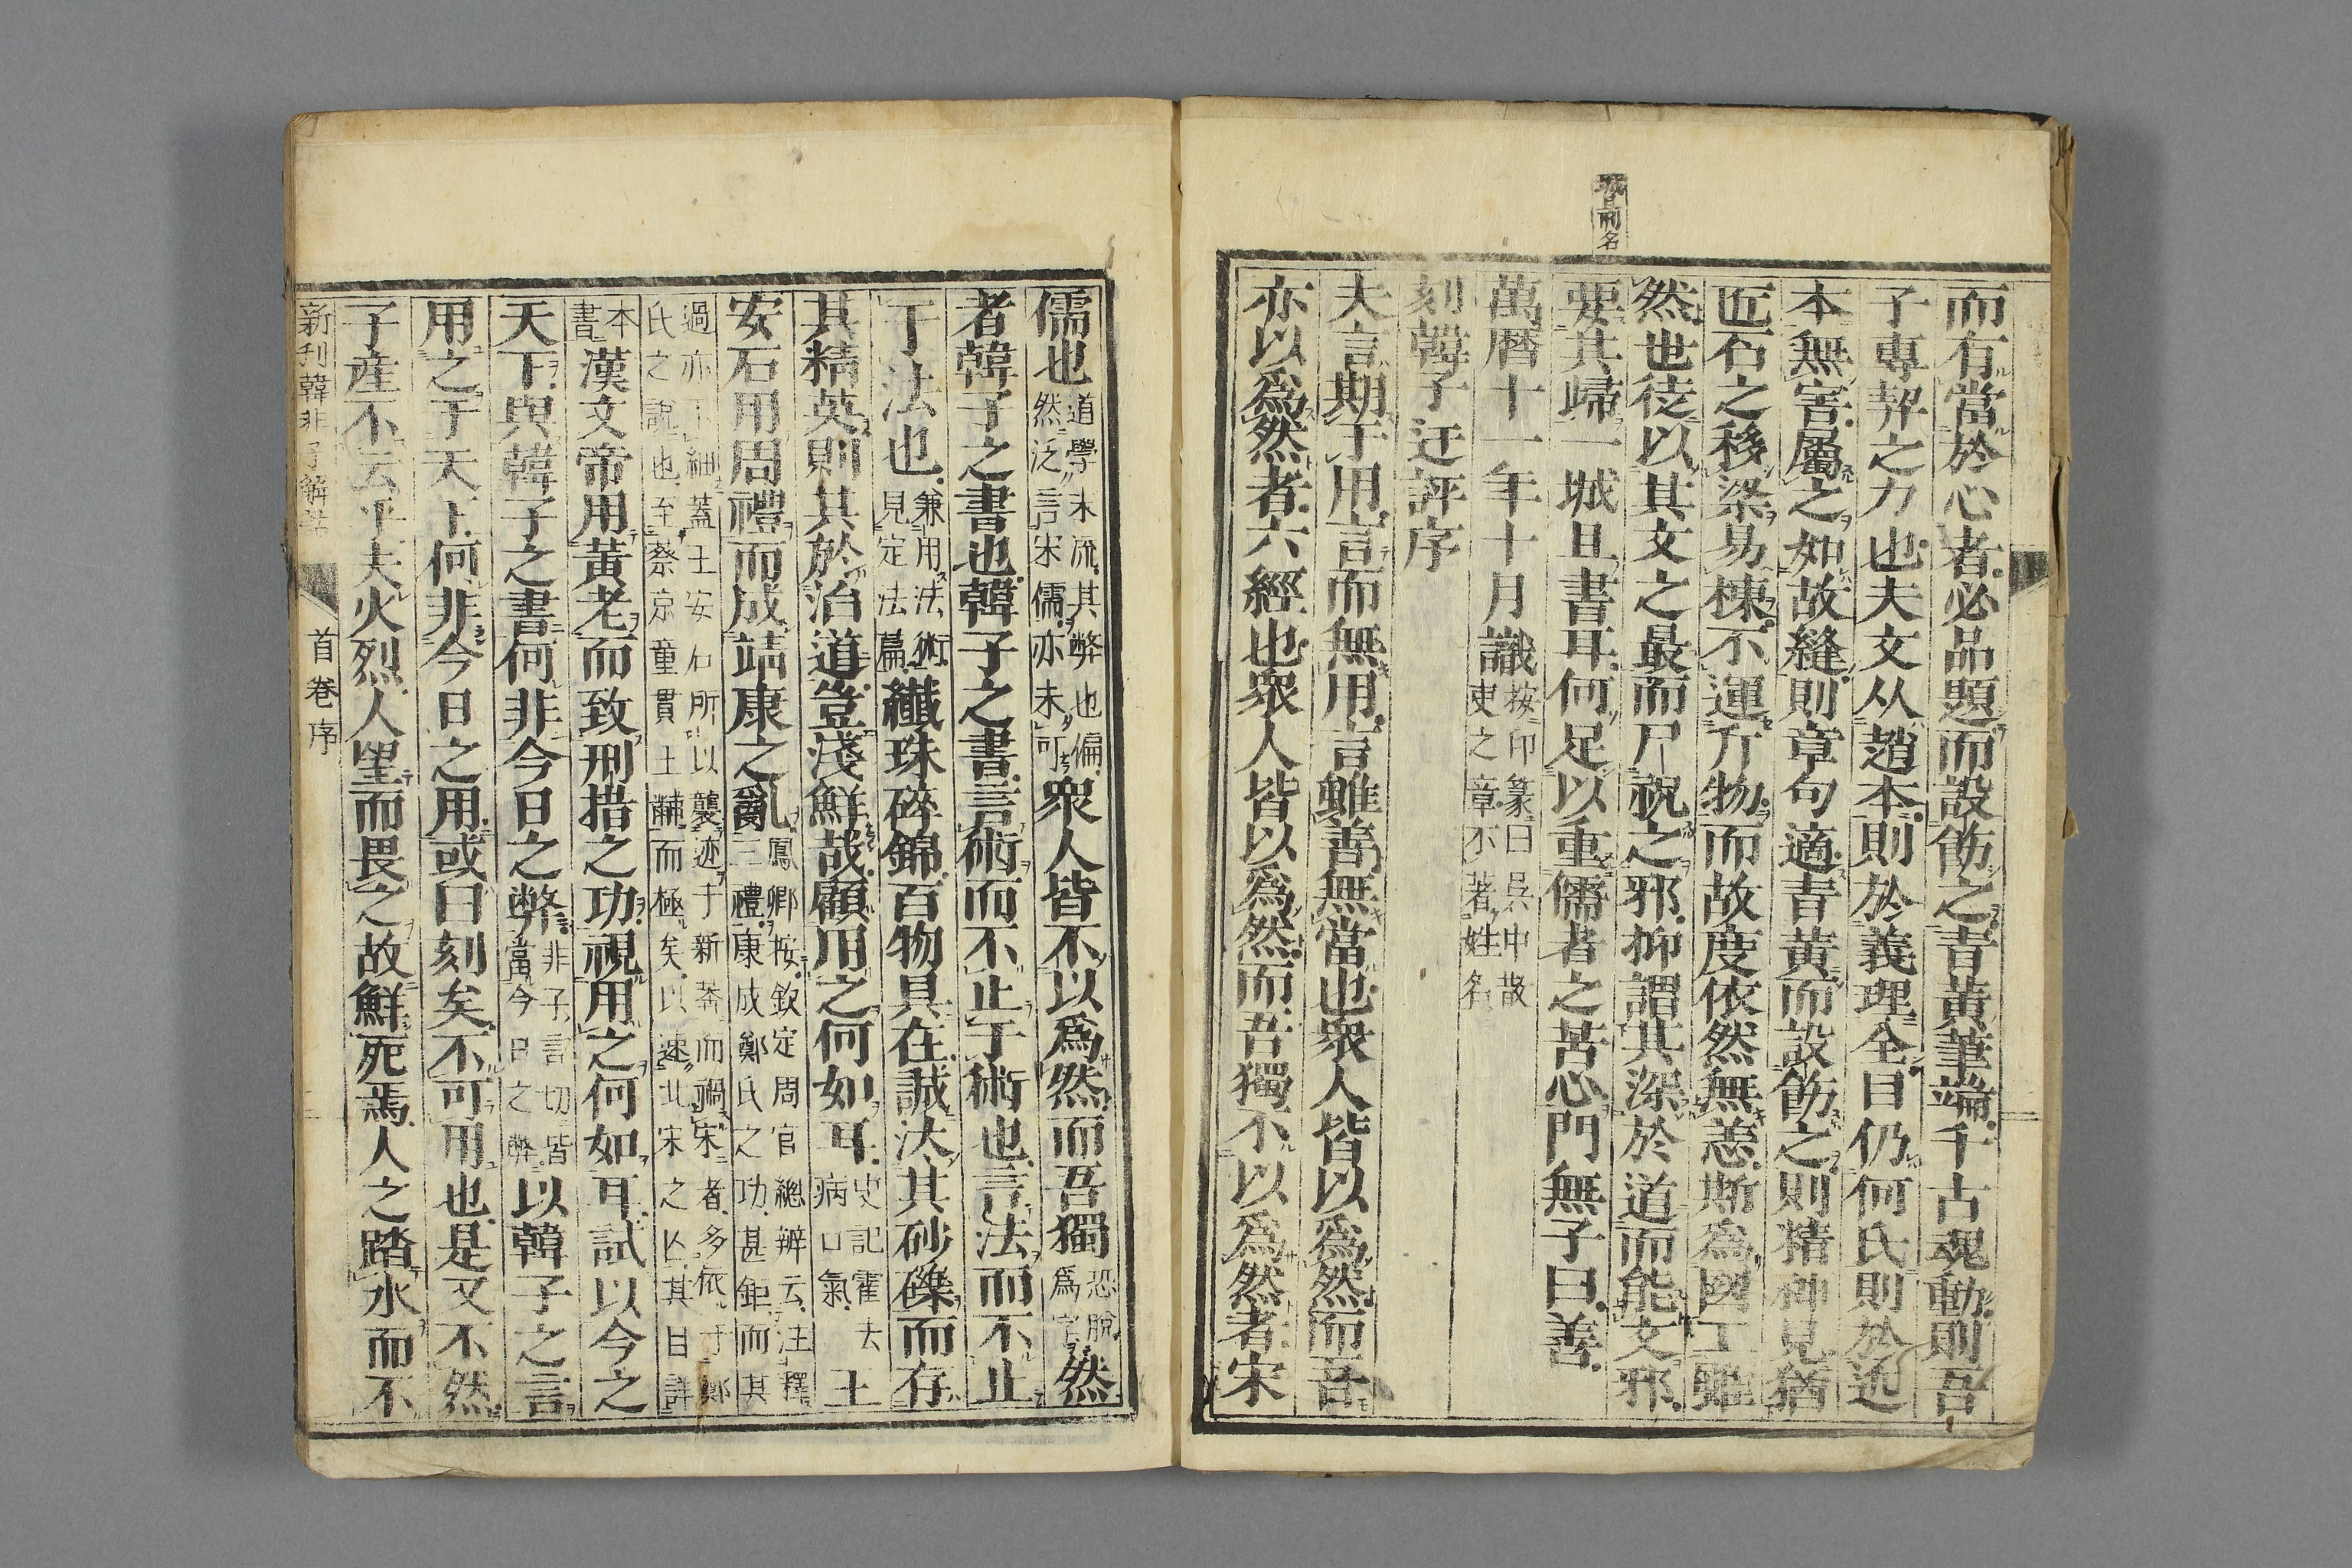 城旦刑名
而有當於心者必品題而設飭之青黃筆端千古魂動則吾
子專挈之力也夫文从趙本則於義理全目仍何氏則於近
本無害屬之如故縫則章句適青黃而設飭之則精神見猶
匠石之移梁易棟不運斤物而故度依然無恙斯爲國工雖
然世徒以其文之最而尸祝之邪抑謂其深於道而能文邪
要其歸一城旦書耳何足以重儒者之苦心門無子曰善
萬曆十一年十月識
按印篆曰吳中散
吏之章不著姓名
刻韓子迂評序
夫言期于用言而無用言雖善無當也衆人皆以爲然而吾
亦以爲然者六經也衆人皆以爲然而吾獨不以爲然者宋
儒也
道學末流其弊也偏
然泛言宋儒亦未可
衆人皆不以爲然而吾獨
恐脫
爲字
然
者韓子之書也韓子之書言術而不止于術也言法而不止
于法也
兼用法術
見定法篇
纖珠碎錦百物具在誠汰其砂礫而存
其精英則其於治道豈淺鮮哉顧用之何如耳
史記霍去
病口氣
王
安石用周禮而成靖康之亂
鳳卿按欽定周官總辨云注釋
三禮康成鄭氏之功甚鉅而其
過亦不細蓋王安石所以襲迹于新莽而禍宋者多依于鄭
氏之說也至蔡京童貫王黼而極矣以速北宋之亡其目詳
本
書
漢文帝用黃老而致刑措之功視用之何如耳試以今之
天下與韓子之書何非今日之弊
非子言切皆
當今日之弊
以韓子之言
用之于天下何非今日之用或曰刻矣不可用也是又不然
子產不云乎夫火烈人望而畏之故鮮死焉人之踏水而不
新刊韓非子解詁
首卷 序
二